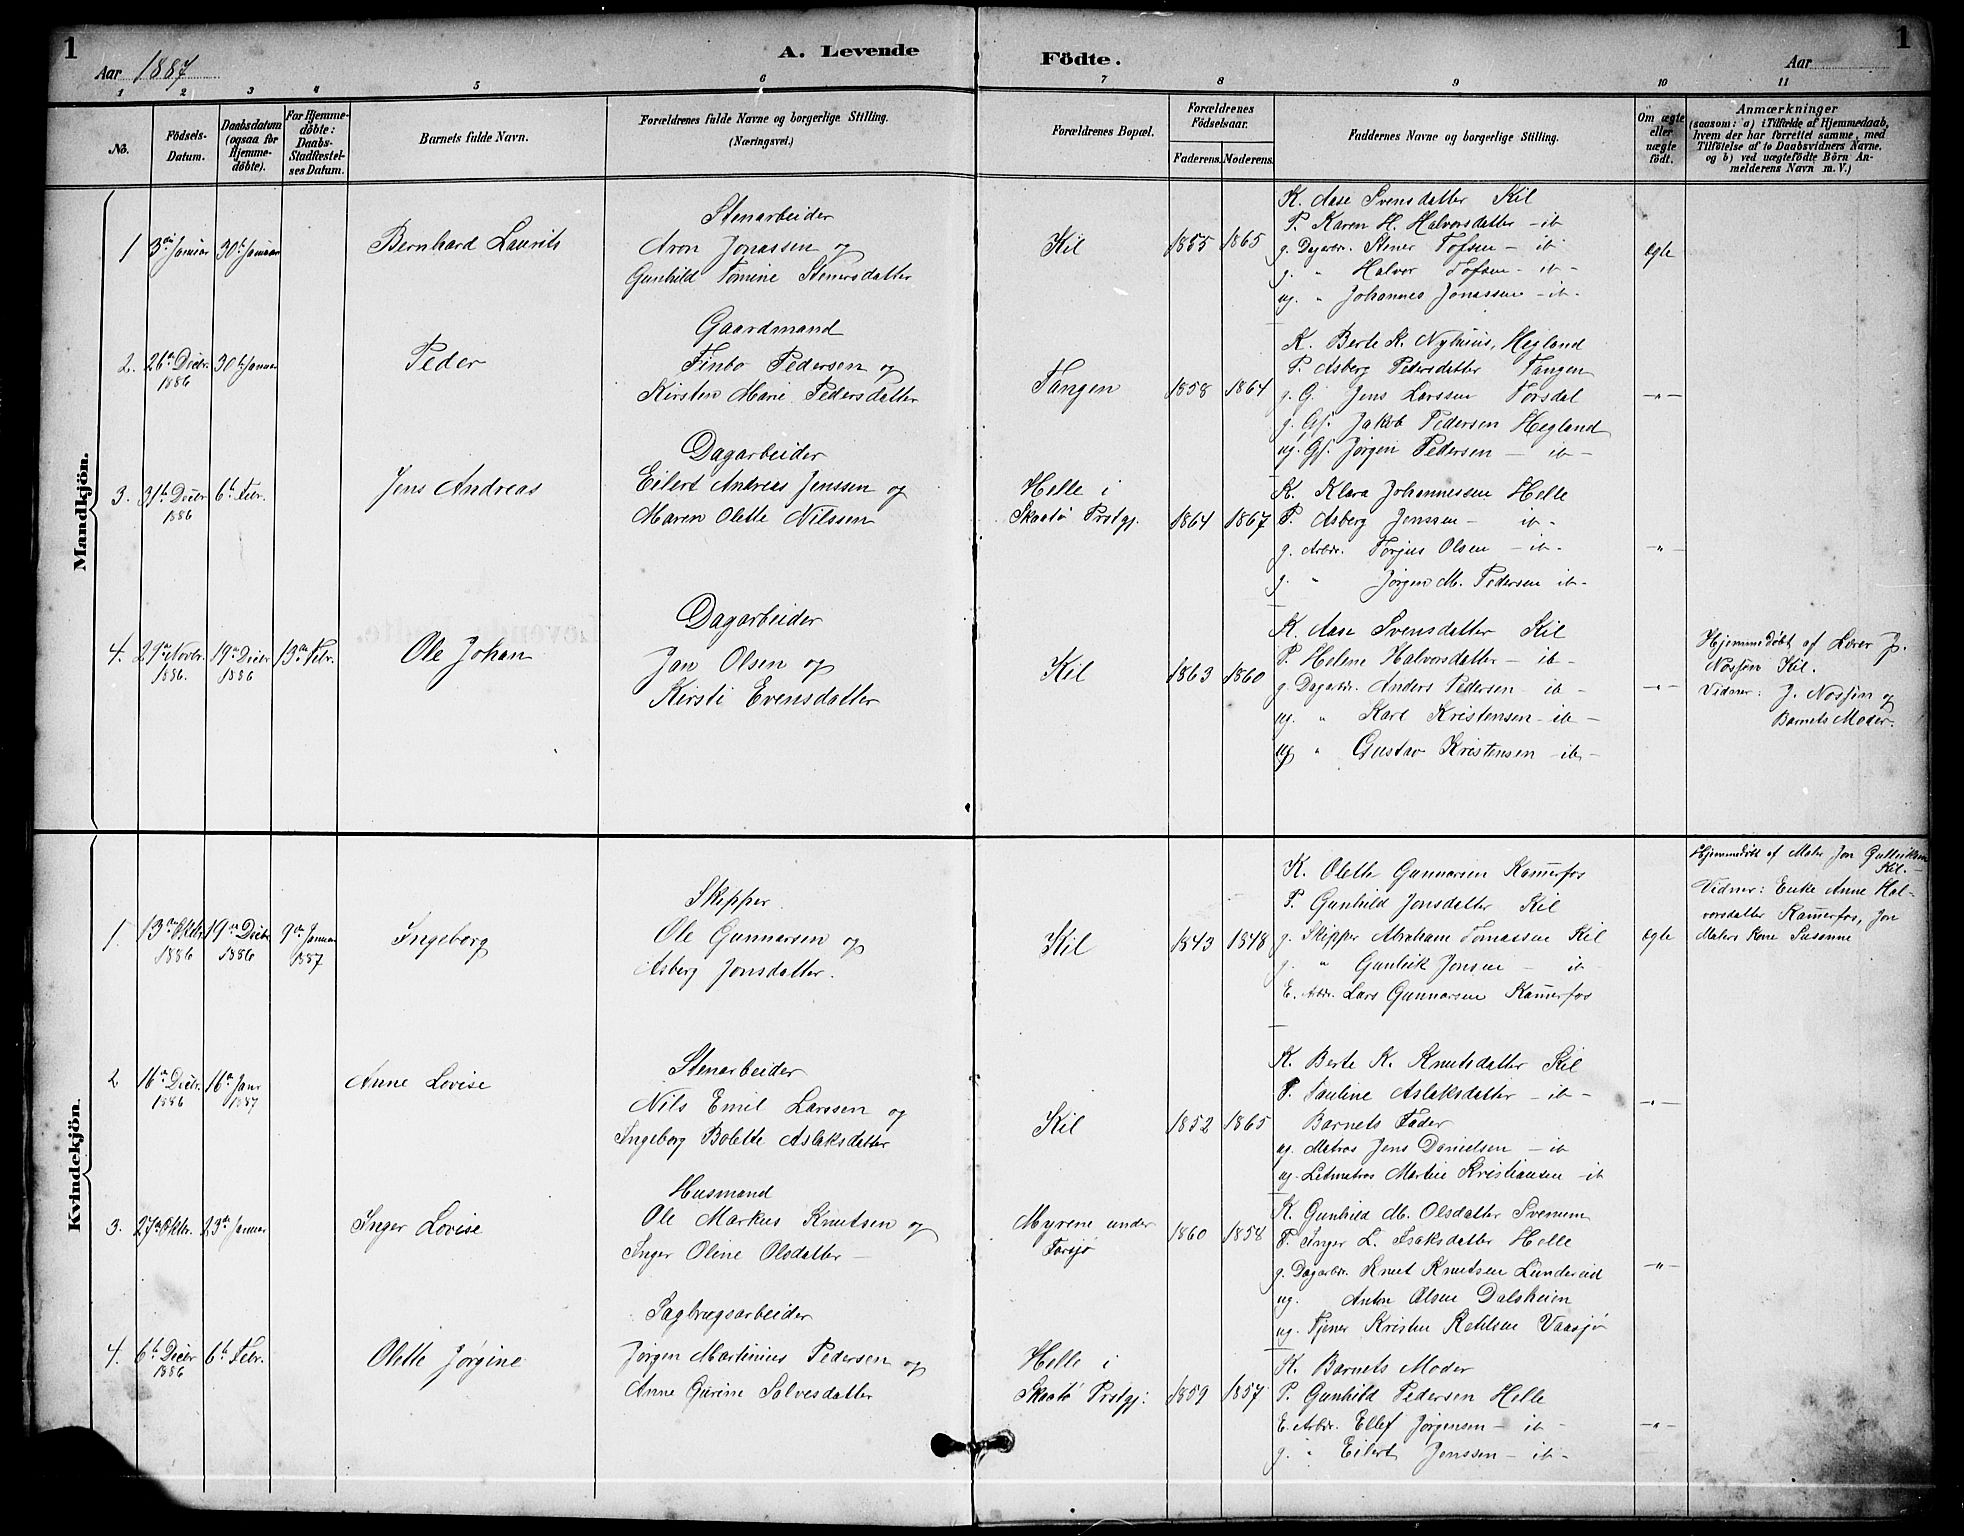 1
Aar 1887
A. Levende
Födte.
Aar
1
1 2 3 4 5 6 7 8 9 10 11
No.
Födsels-
Datum.
Daabsdatum
(ogsaa for
Hjemme-
döbte).
For Hjemme-
döbte:
Daabs-
Stadfæstel-
ses Datum.
Barnets fulde Navn.
Forældrenes fulde Navne og borgerlige Stilling.
(Næringsvei.)
Forældrenes Bopæl.
Forældrenes
Födselsaar.
Faderens. Moderens.
Faddernes Navne og borgerlige Stilling.
Om ægte
eller
uægte
födt.
Anmærkninger
(saasom: a) i Tilfælde af Hjemmedaab,
hvem der har forrettet samme, med
Tilföielse af to Daabsvidners Navne,
og b) ved uægtefödte Börn An-
melderens Navn m. V.)
Mandkjön.
1 3die Januar 30te Januar
Bernhard Laurits
Stenarbeider
Aron Jonassen og
Gunhild Tomene Stenersdatter
Kil
1855 1865
K. Aase Svensdatter Kil
P. Karen H. Halvorsdatter - ib
g. Dagarbr. Stener Tofsen - ib
g. " Halvor Tofsen - ib -
ug. " Johannes Jonassen - ib -
Ægte
2. 26de Decbr. 1886 30te Januar
Peder
Gaardmand
Finbo Pedersen og
Kirsten Marie Pedersdatter
Tangen
1858 1864
K. Berte K. Nyhuus, Hegland
P. Asberg Pedersdatter Tangen
g. G. Jens Larssen Torsdal
g. Gf. Jakob Pedersen Hegland
ug. Gf. Jørgen Pedersen - ib -
- " -
3. 31te Decbr 1886 6te Febr.
Jens Andreas
Dagarbeider
Eilert Andreas Jenssen og
Maren Olette Nilssen
Helle i
Skaatø Prstgj.
1864 1867
K. Klara Johannessen Helle
P. Asberg Jenssen - ib -
g. Arbdr. Torjus Olsen - ib -
g. " Jørgen M. Pedersen ib -
- " -
4. 29de Novbr. 1886. 19de Decbr 1886 13de Febr.
Ole Johan
Dagarbeider
Jan Olsen og
Kirsti Evensdatter
Kil
1863 1860
K. Aase Svensdatter Kil
P. Helene Halvorsdatter - ib -
g. Dagarbr. Anders Pedersen - ib -
ug. " Karl Kristensen - ib -
ug " Gustav Kristensen - ib -
- " -
Hjemmedøbt af Lærer J.
Nossen Kil.
Vidner: J. Nossen og
Barnets Moder.
Kvindekjön.
1. 13de Oktbr 1886 19de Decbr 1886 9de Januar 1887
Ingeborg
Skipper
Ole Gunnarsen og
Asberg Jonsdatter.
Kil
1843 1848
K. Olette Gunnarsen Kammerfos
P. Gunhild Jonsdatter Kil
g. Skipper Abraham Tomassen Kil
g. " Gunleik Jonsen - ib -
E. Arbdr. Lars Gunnarsen Kammerfos
Ægte
Hjemmedøbt af Maler Jon Gulleiksen
Kil. -
Vidner: Enke Anne Hal-
vorsdatter Kammerfos, Jon
Malers Kone Susanne
2 16de Decbr. 1886 16de Janr 1887
Anne Lovise
Stenarbeider
Nils Emil Larssen og
Ingeborg Bolette Aslaksdatter
Kil
1852 1865
K. Berte K. Knutsdatter Kil
P. Pauline Aslaksdatter - ib -
Barnets Fader
ug. Matros Jens Danielsen - ib
ug. Letmatros Martin Kristiansen - ib
- " -
3. 27de Oktbr. 23de Januar
Inger Lovise
Husmand
Ole Markus Knutsen og
Inger Oline Olsdatter -
Myrene under
Farsjø
1860 1854
K. Gunhild M. Olsdatter Svenum
P. Inger L. Isaksdatter Helle
g. Dagarbdr. Knut Knutsen Lundereid
ug. Anton Olsen Dalsheien
ug. Tjener Kristen Ketilsen Vaasjø
- " -
4. 6te Decbr 1886 6te Febr.
Olette Jørgine
Sagbrugsarbeider
Jørgen Martinius Pedersen og
Anne Gurine Solvesdatter
Helle i
Skaatø Prstgj:
1859 1857
K. Barnets Moder
P. Gunhild Pedersen Helle
E. Arbdr. Ellef Jørgensen - ib -
g. " Eilert Jenssen - ib -
- " -